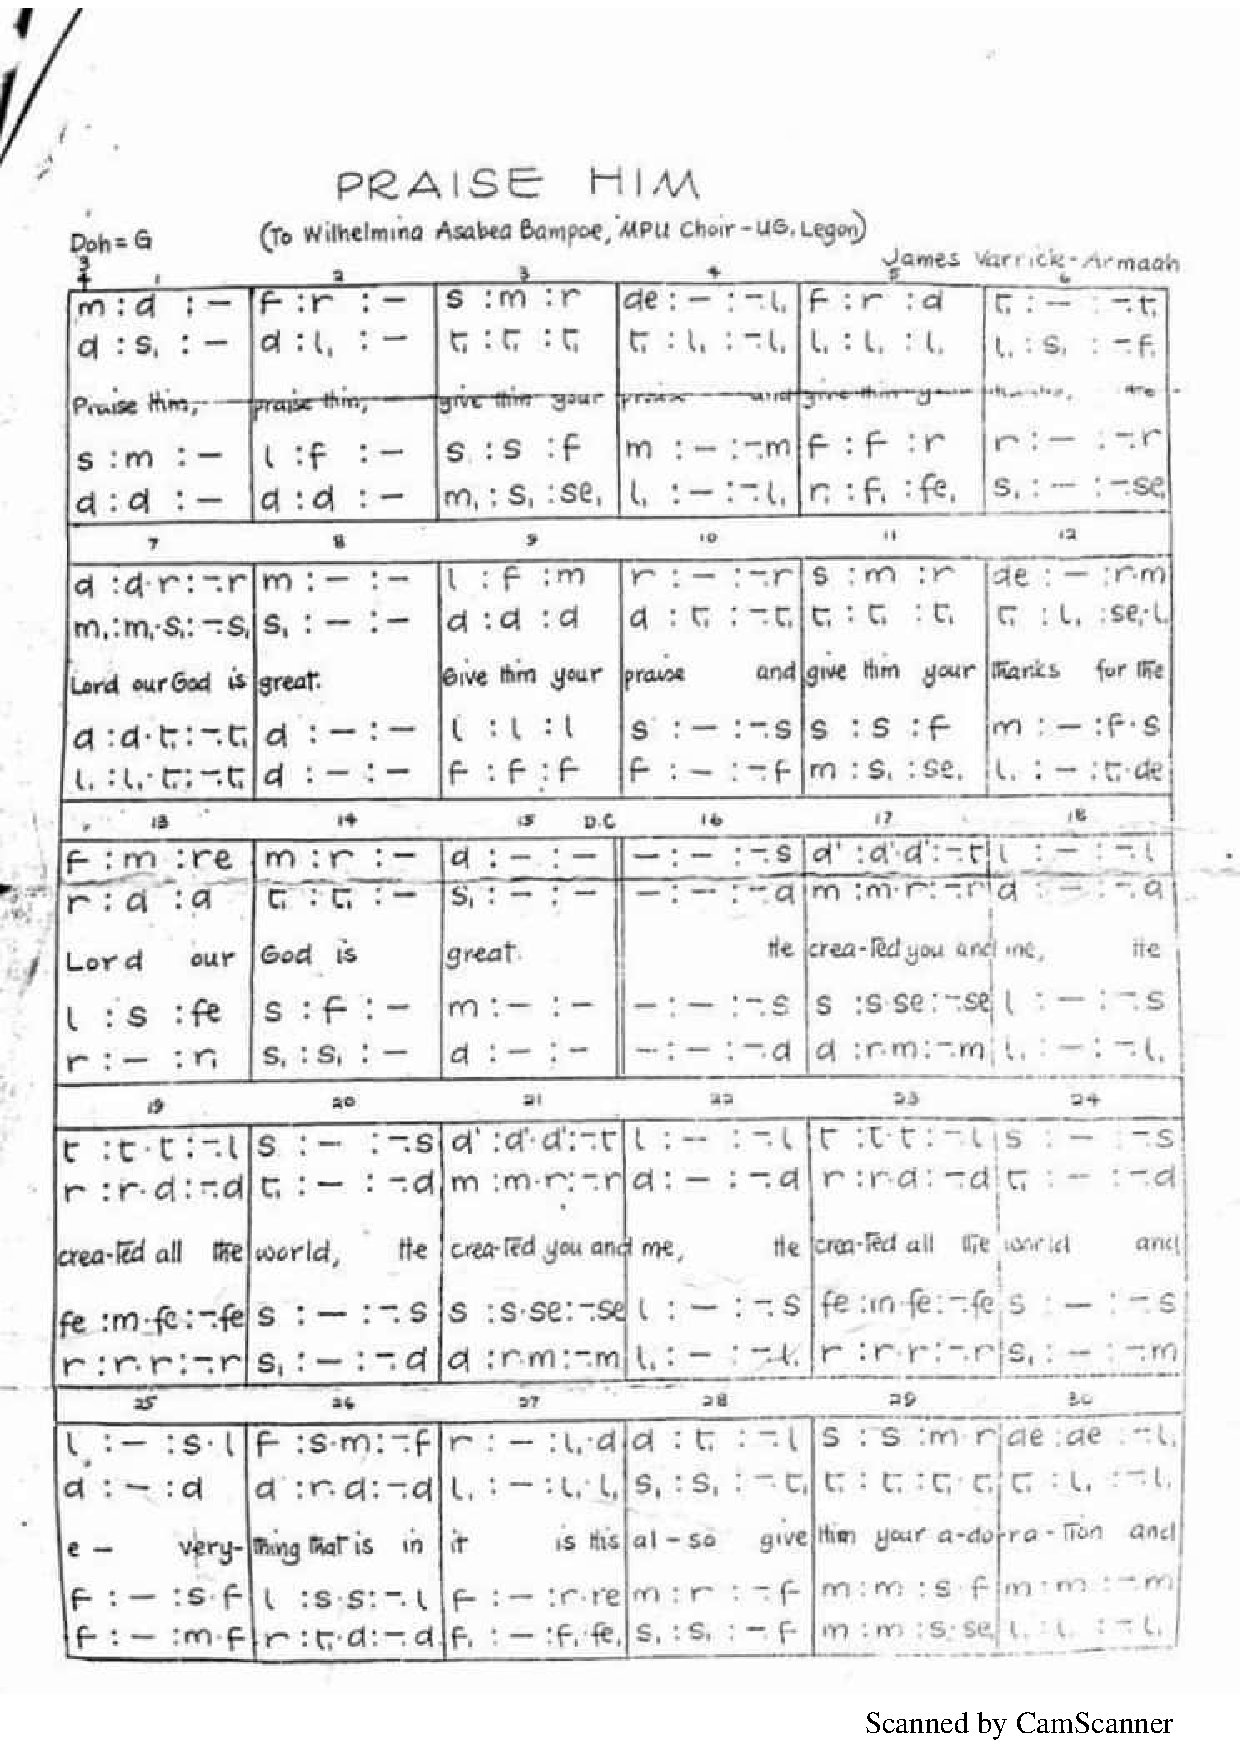 PRAISE HIM
(To Wilhelmina Asabea Bampoe, MPU Choir - UG, Legon)
Doh = G
James Varrick - Armaah
3
4
1 2 3 4 5 6
m : d : – | f : r : – | s : m : r | de : – : –.l, | f : r : d | t, : – : –.t,
d : s, : – | d : l, : – | t, : t, : t, | t, : l, : –.l, | l, : l, : l, | l, : s, : –.f,
Praise Him, praise him, give Him your praise and give Him your thanks, the
s : m : – | l : f : – | s : s : f | m : – : –.m | f : f : r | r : – : –.r
d : d : – | d : d : – | m, : s, : se, | l, : – : –.l, | r, : f, : fe, | s, : – : –.se,
7 8 9 10 11 12
d : d.r : –.r | m : – : – | l : f : m | r : – : –.r | s : m : r | de : – : r.m
m, : m,.s, : –.s, | s, : – : – | d : d : d | d : t, : –.t, | t, : t, : t, | t, : l, : se,.l,
Lord our God is great. Give Him your praise and give Him your thanks for the
d : d.t, : –.t, | d : – : – | l : l : l | s : – : –.s | s : s : f | m : – : f.s
l, : l,.t, : –.t, | d : – : – | f : f : f | f : – : –.f | m : s, : se, | l, : – : t,.de
13 14 15 D.C 16 17 18
f : m : re | m : r : – | d : – : – || – : – : –.s | d' : d'.d' : –.t | l : – : –.l
r : d : d | t, : t, : – | s, : – : – || – : – : –.d | m : m.r : –.r | d : – : –.d
Lord our God is great. He crea-ted you and me, He
l : s : fe | s : f : – | m : – : – || – : – : –.s | s : s.se : –.se | l : – : –.s
r : – : r, | s, : s, : – | d : – : – || – : – : –.d | d : r.m : –.m | l, : – : –.l,
19 20 21 22 23 24
t : t.t : –.l | s : – : –.s | d' : d'.d' : –.t | l : – : –.l | t : t.t : –.l | s : – : –.s
r : r.d : –.d | t, : – : –.d | m : m.r : –.r | d : – : –.d | r : r.d : –.d | t, : – : –.d
crea-ted all the world, He crea-ted you and me, He crea-ted all the world and
fe : m.fe : –.fe | s : – : –.s | s : s.se : –.se | l : – : –.s | fe : m.fe : –.fe | s : – : –.s
r : r.r : –.r | s, : – : –.d | d : r.m : –.m | l, : – : –.l, | r : r.r : –.r | s, : – : –.m
25 26 27 28 29 30
l : – : s.l | f : s.m : –.f | r : – : l,.d | d : t, : –.l | s : s : m.r | de : de : –.l,
d : – : d | d : r.d : –.d | l, : – : l,.l, | s, : s, : –.t, | t, : t, : t,.t, | t, : l, : –.l,
e – very- thing that is in it is His al-so give Him your a-do-ra-tion and
f : – : s.f | l : s.s : –.l | f : – : r.re | m : r : –.f | m : m : s.f | m : m : –.m
f : – : m.f | r : t,.d : –.d | f, : – : f,.fe, | s, : s, : –.f | m : m : s.se | l, : l, : –.l,
Scanned by CamScanner